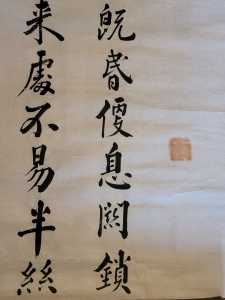 既昬便息闗鎖
来處不易半絲